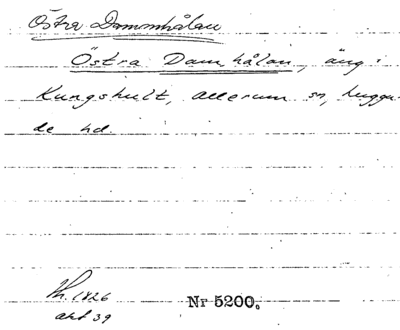 Östra Dammhålan
Östra Damhålan, äng i
Kungshult, Allerum sn, Luggu-
de hd.
Lh. 1826
akt 39
Nr 5200.